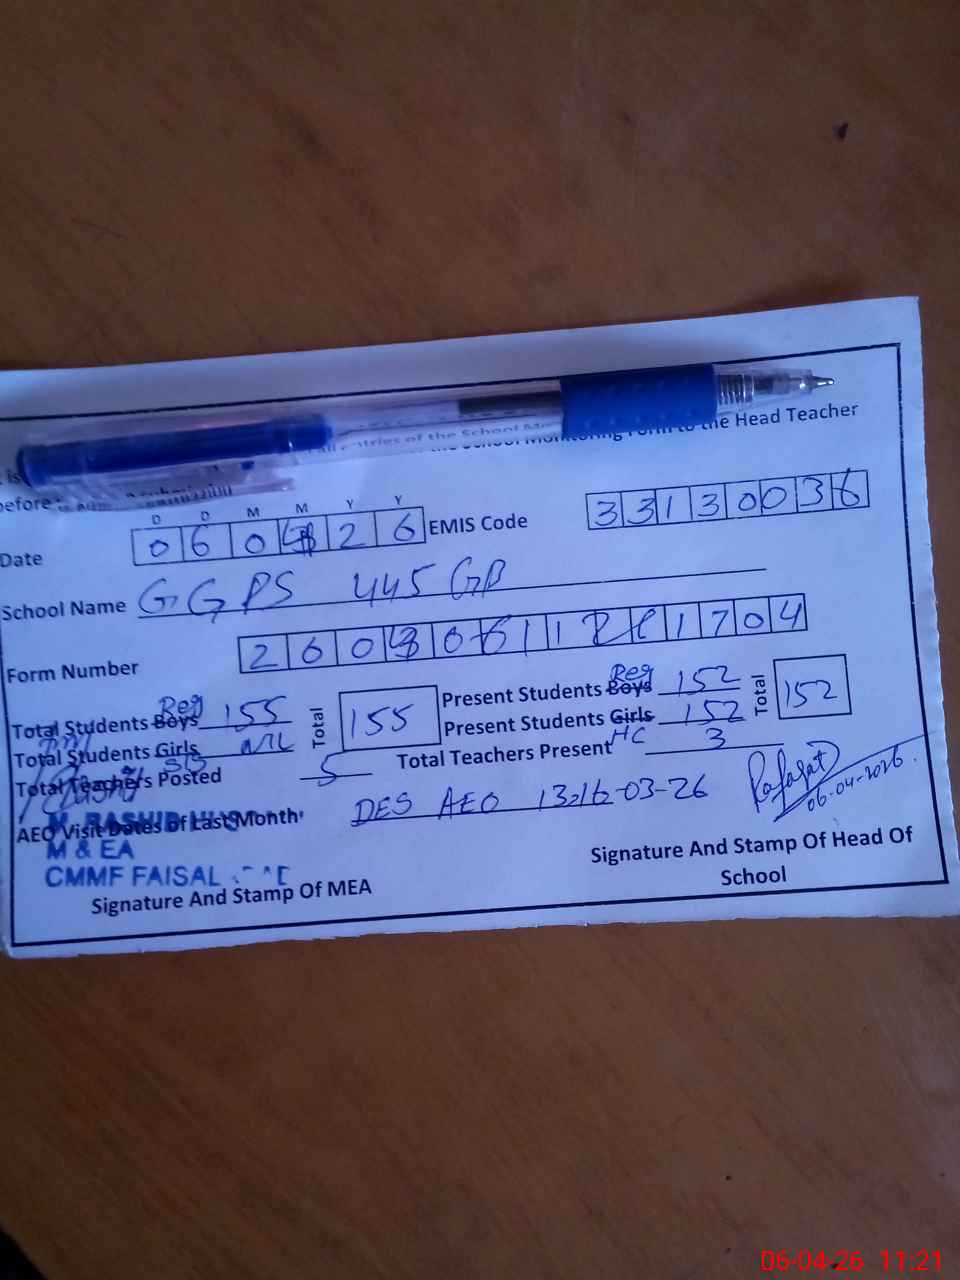 entries of the School Monitoring Form to the Head Teacher
before
D D M M Y Y
Date 0 6 0 4 2 6 EMIS Code 3 3 1 3 0 0 3 6
School Name GGPS 445 GB
Form Number 2 6 0 1 1 7 0 4
Total Students Boys Reg 155 Total 155
Present Students Boys Reg 152 Total 152
Total Students Girls NIL
Present Students Girls 152
Total Teachers Posted 5
Total Teachers Present HC 3
AEO Visit Dates of Last Month DES AEO 13,16-03-26
06-04-2026
M & EA
CMMF FAISAL
Signature And Stamp Of MEA
Signature And Stamp Of Head Of
School
06-04-26 11:21